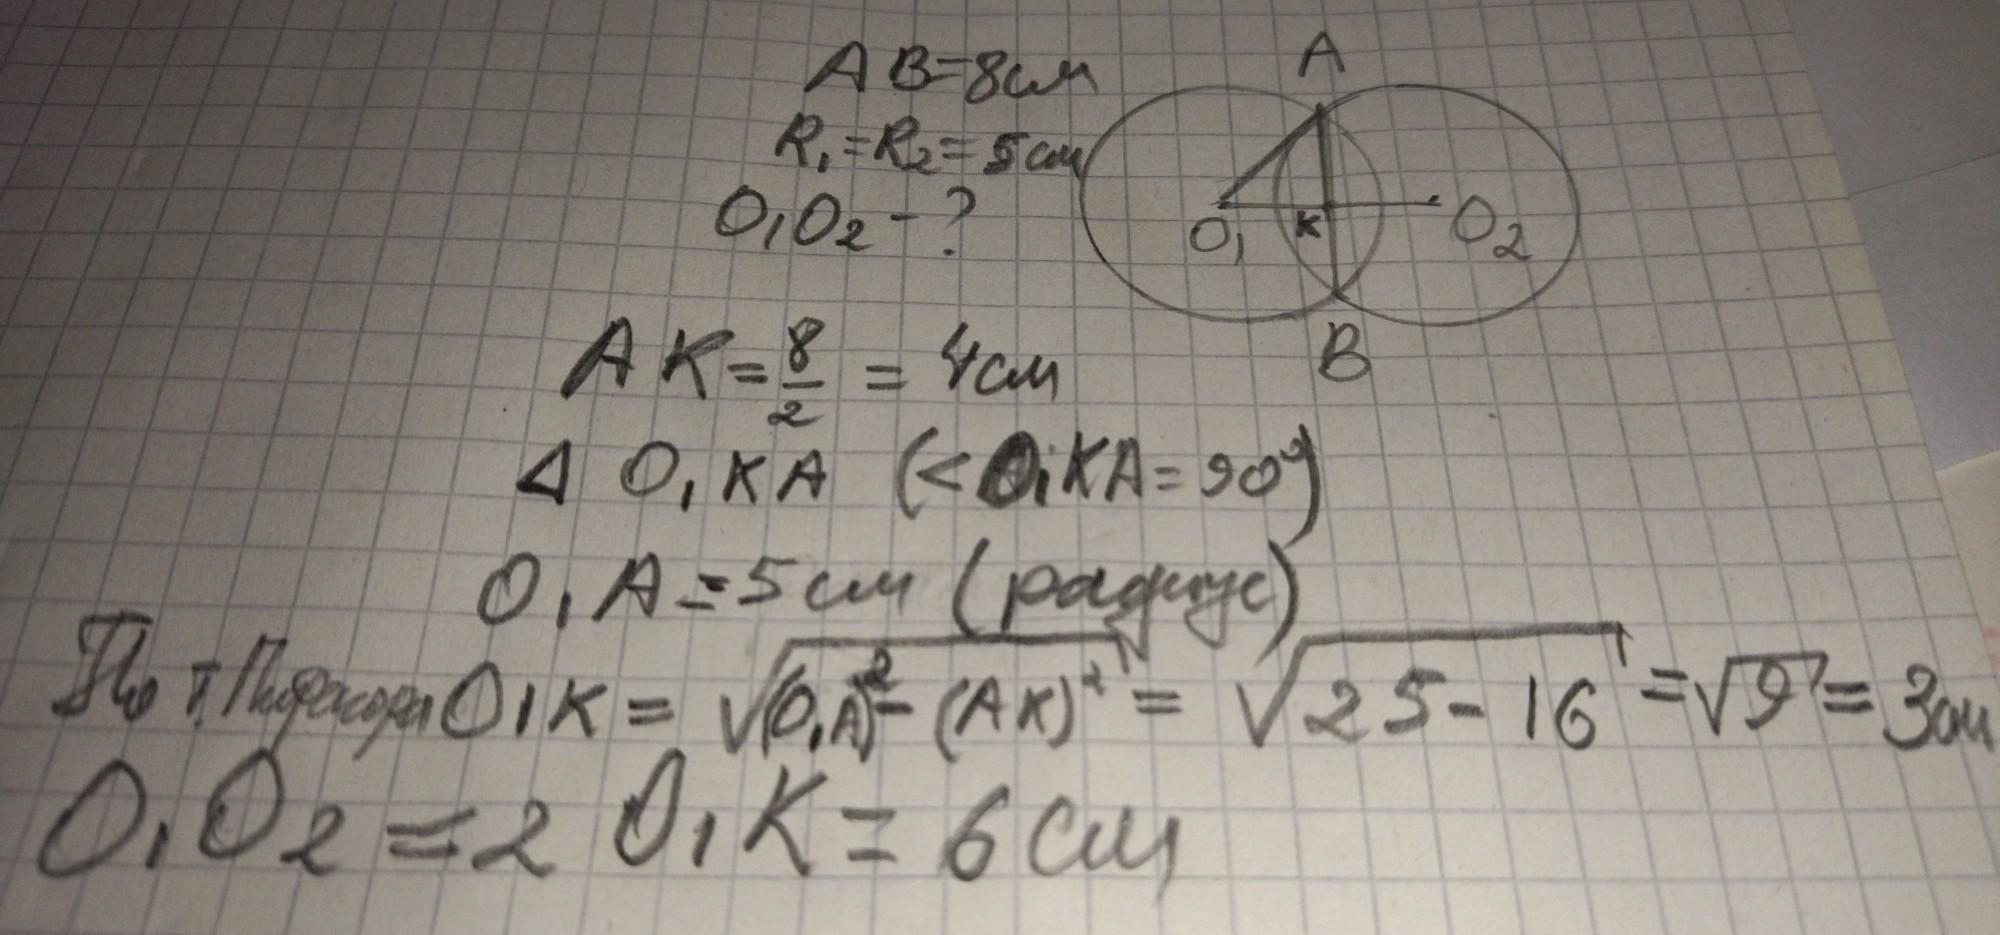 AB=8см
R₁=R₂=5см
O₁O₂-?
A
O₁ K O₂
B
AK=8/2=4см
Δ O₁KA (<O₁KA=90°)
O₁A=5см (радиус)
По т. Пифагора O₁K=√(O₁A)²-(AK)²=√25-16=√9=3см
O₁O₂=2 O₁K=6см